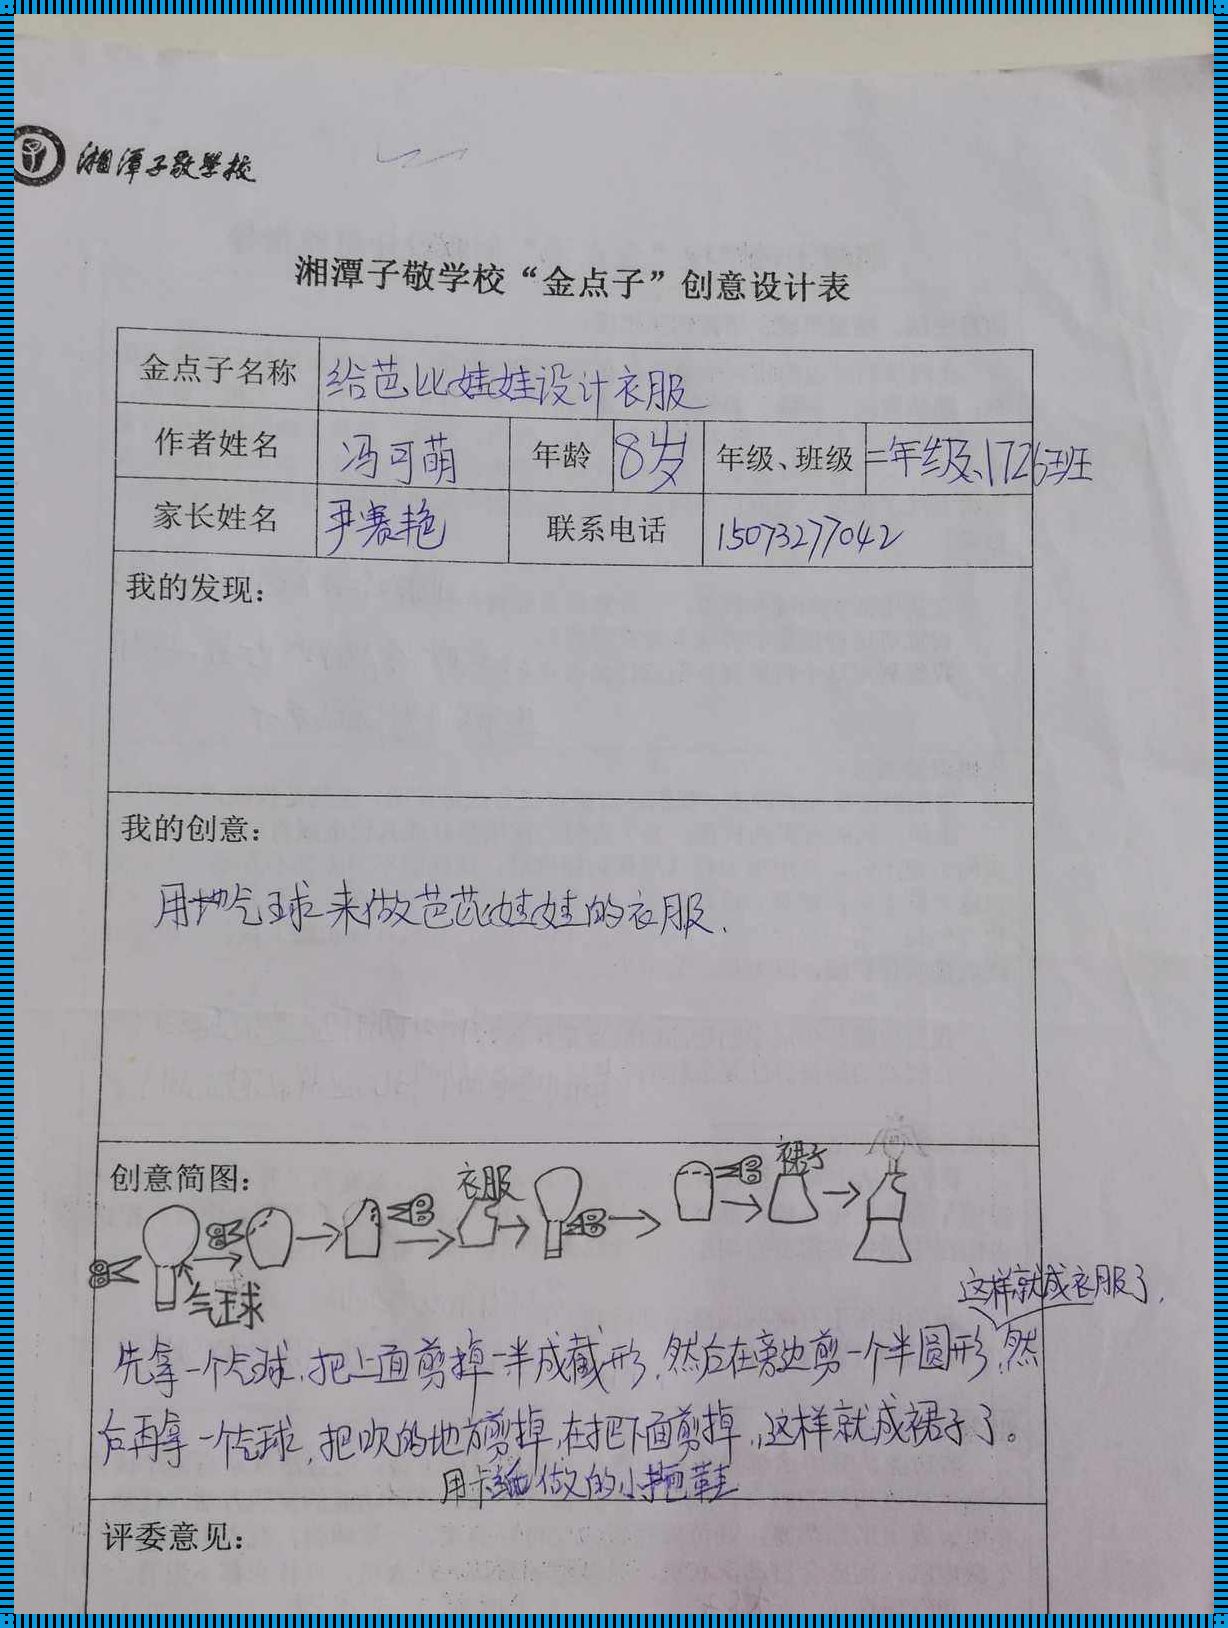 湘潭子敬学校
湘潭子敬学校“金点子”创意设计表
金点子名称 给芭比娃娃设计衣服
作者姓名 冯可萌 年龄 8岁 年级、班级 二年级、1726班
家长姓名 尹赛艳 联系电话 15073277042
我的发现：
我的创意：
用气球来做芭比娃娃的衣服.
创意简图：
衣服
裙子
气球
这样就成衣服了.
先拿一个气球,把上面剪掉一半成截形,然后在旁边剪一个半圆形,然
后再拿一个气球,把吹的地方剪掉,在把下面剪掉,这样就成裙子了。
用卡纸做的小拖鞋
评委意见：